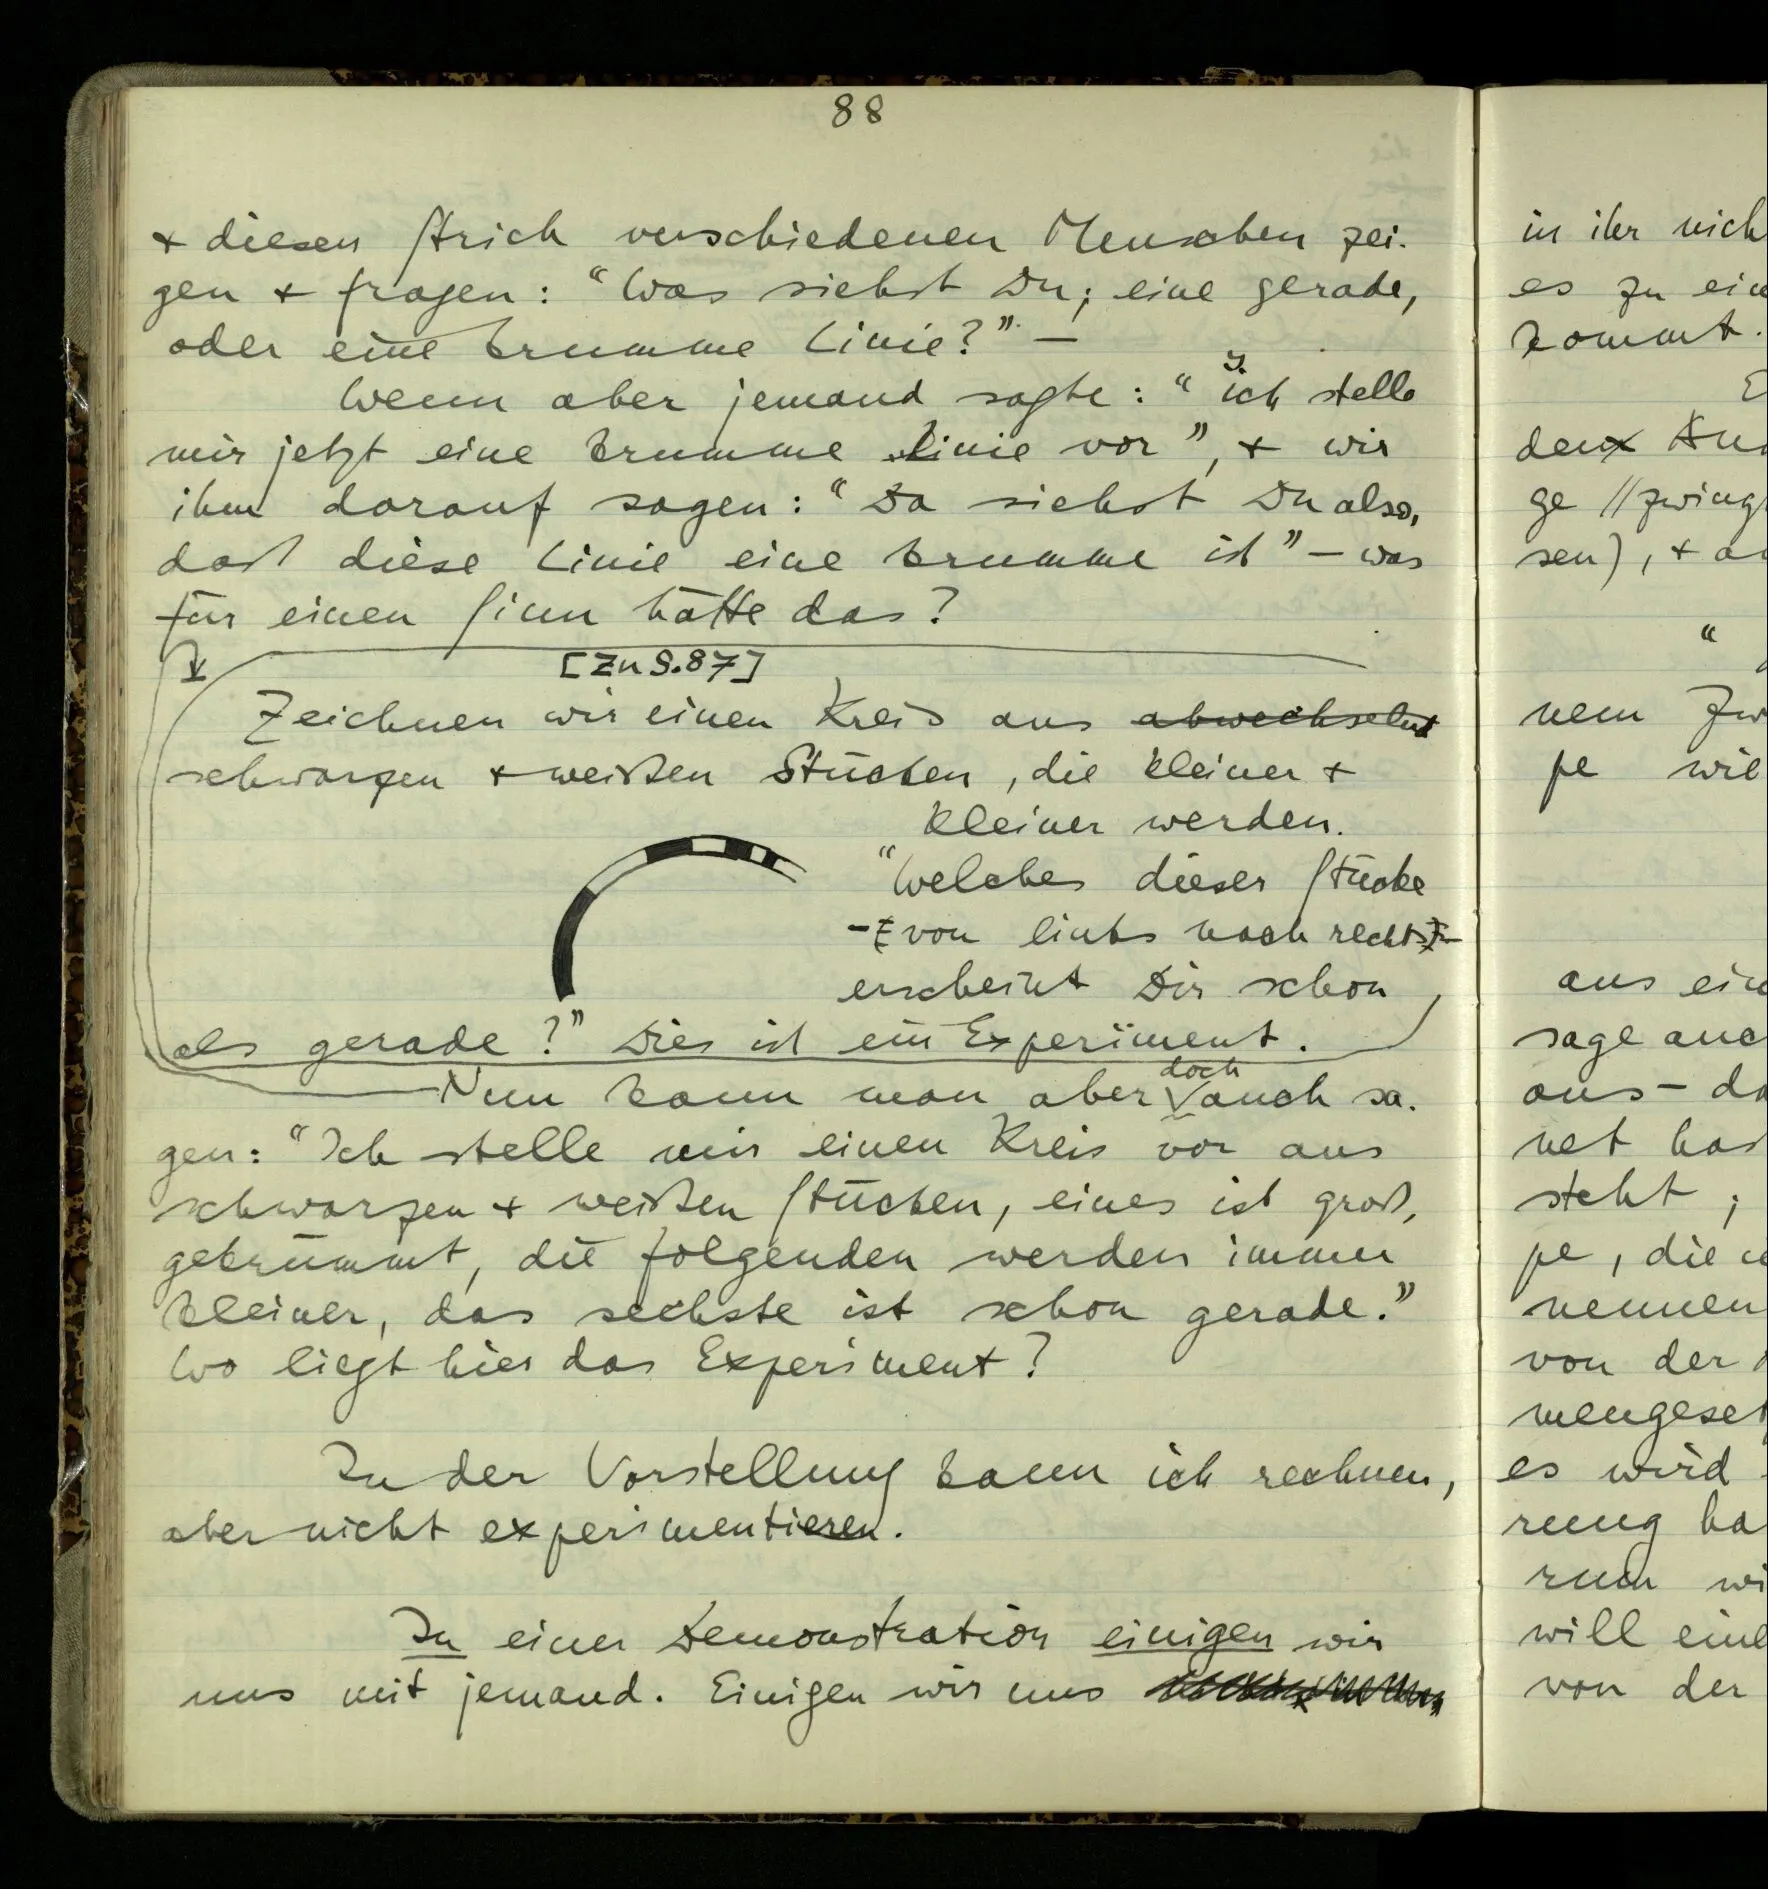 88
& diesen Strich verschiedenen Menschen zei-
gen & fragen: "Was siehst Du; eine gerade,
oder eine krumme Linie?" –
Wenn aber jemand sagte: "ich stelle
mir jetzt eine krumme Linie vor", & wir
ihm darauf sagen: "Da siehst Du also,
daß diese Linie eine krumme ist" – was
für einen Sinn hätte das?
[Zu S.87]
Zeichnen wir einen Kreis aus abwechselnd
schwarzen & weißen Stücken, die kleiner &
kleiner werden.
"Welches dieser Stücke
– von links nach rechts –
erscheint Dir schon
als gerade?" Dies ist ein Experiment.
Nun kann man aber doch auch sa-
gen: "Ich stelle mir einen Kreis vor aus
schwarzen & weißen Stücken, eines ist groß,
gekrümmt, die folgenden werden immer
kleiner, das sechste ist schon gerade."
Wo liegt hier das Experiment?
In der Vorstellung kann ich rechnen,
aber nicht experimentieren.
In einer Demonstration einigen wir
uns mit jemand. Einigen wir uns
in ihr nich
es zu ein
kommt.
den
ge // zwing
sen), & a
"
nem Zw
pe wie
aus ein
sage auc
aus – da
net has
steht ;
pe, die
nennen
von der
menges
es wird
rung ha
rum wi
will eine
von der